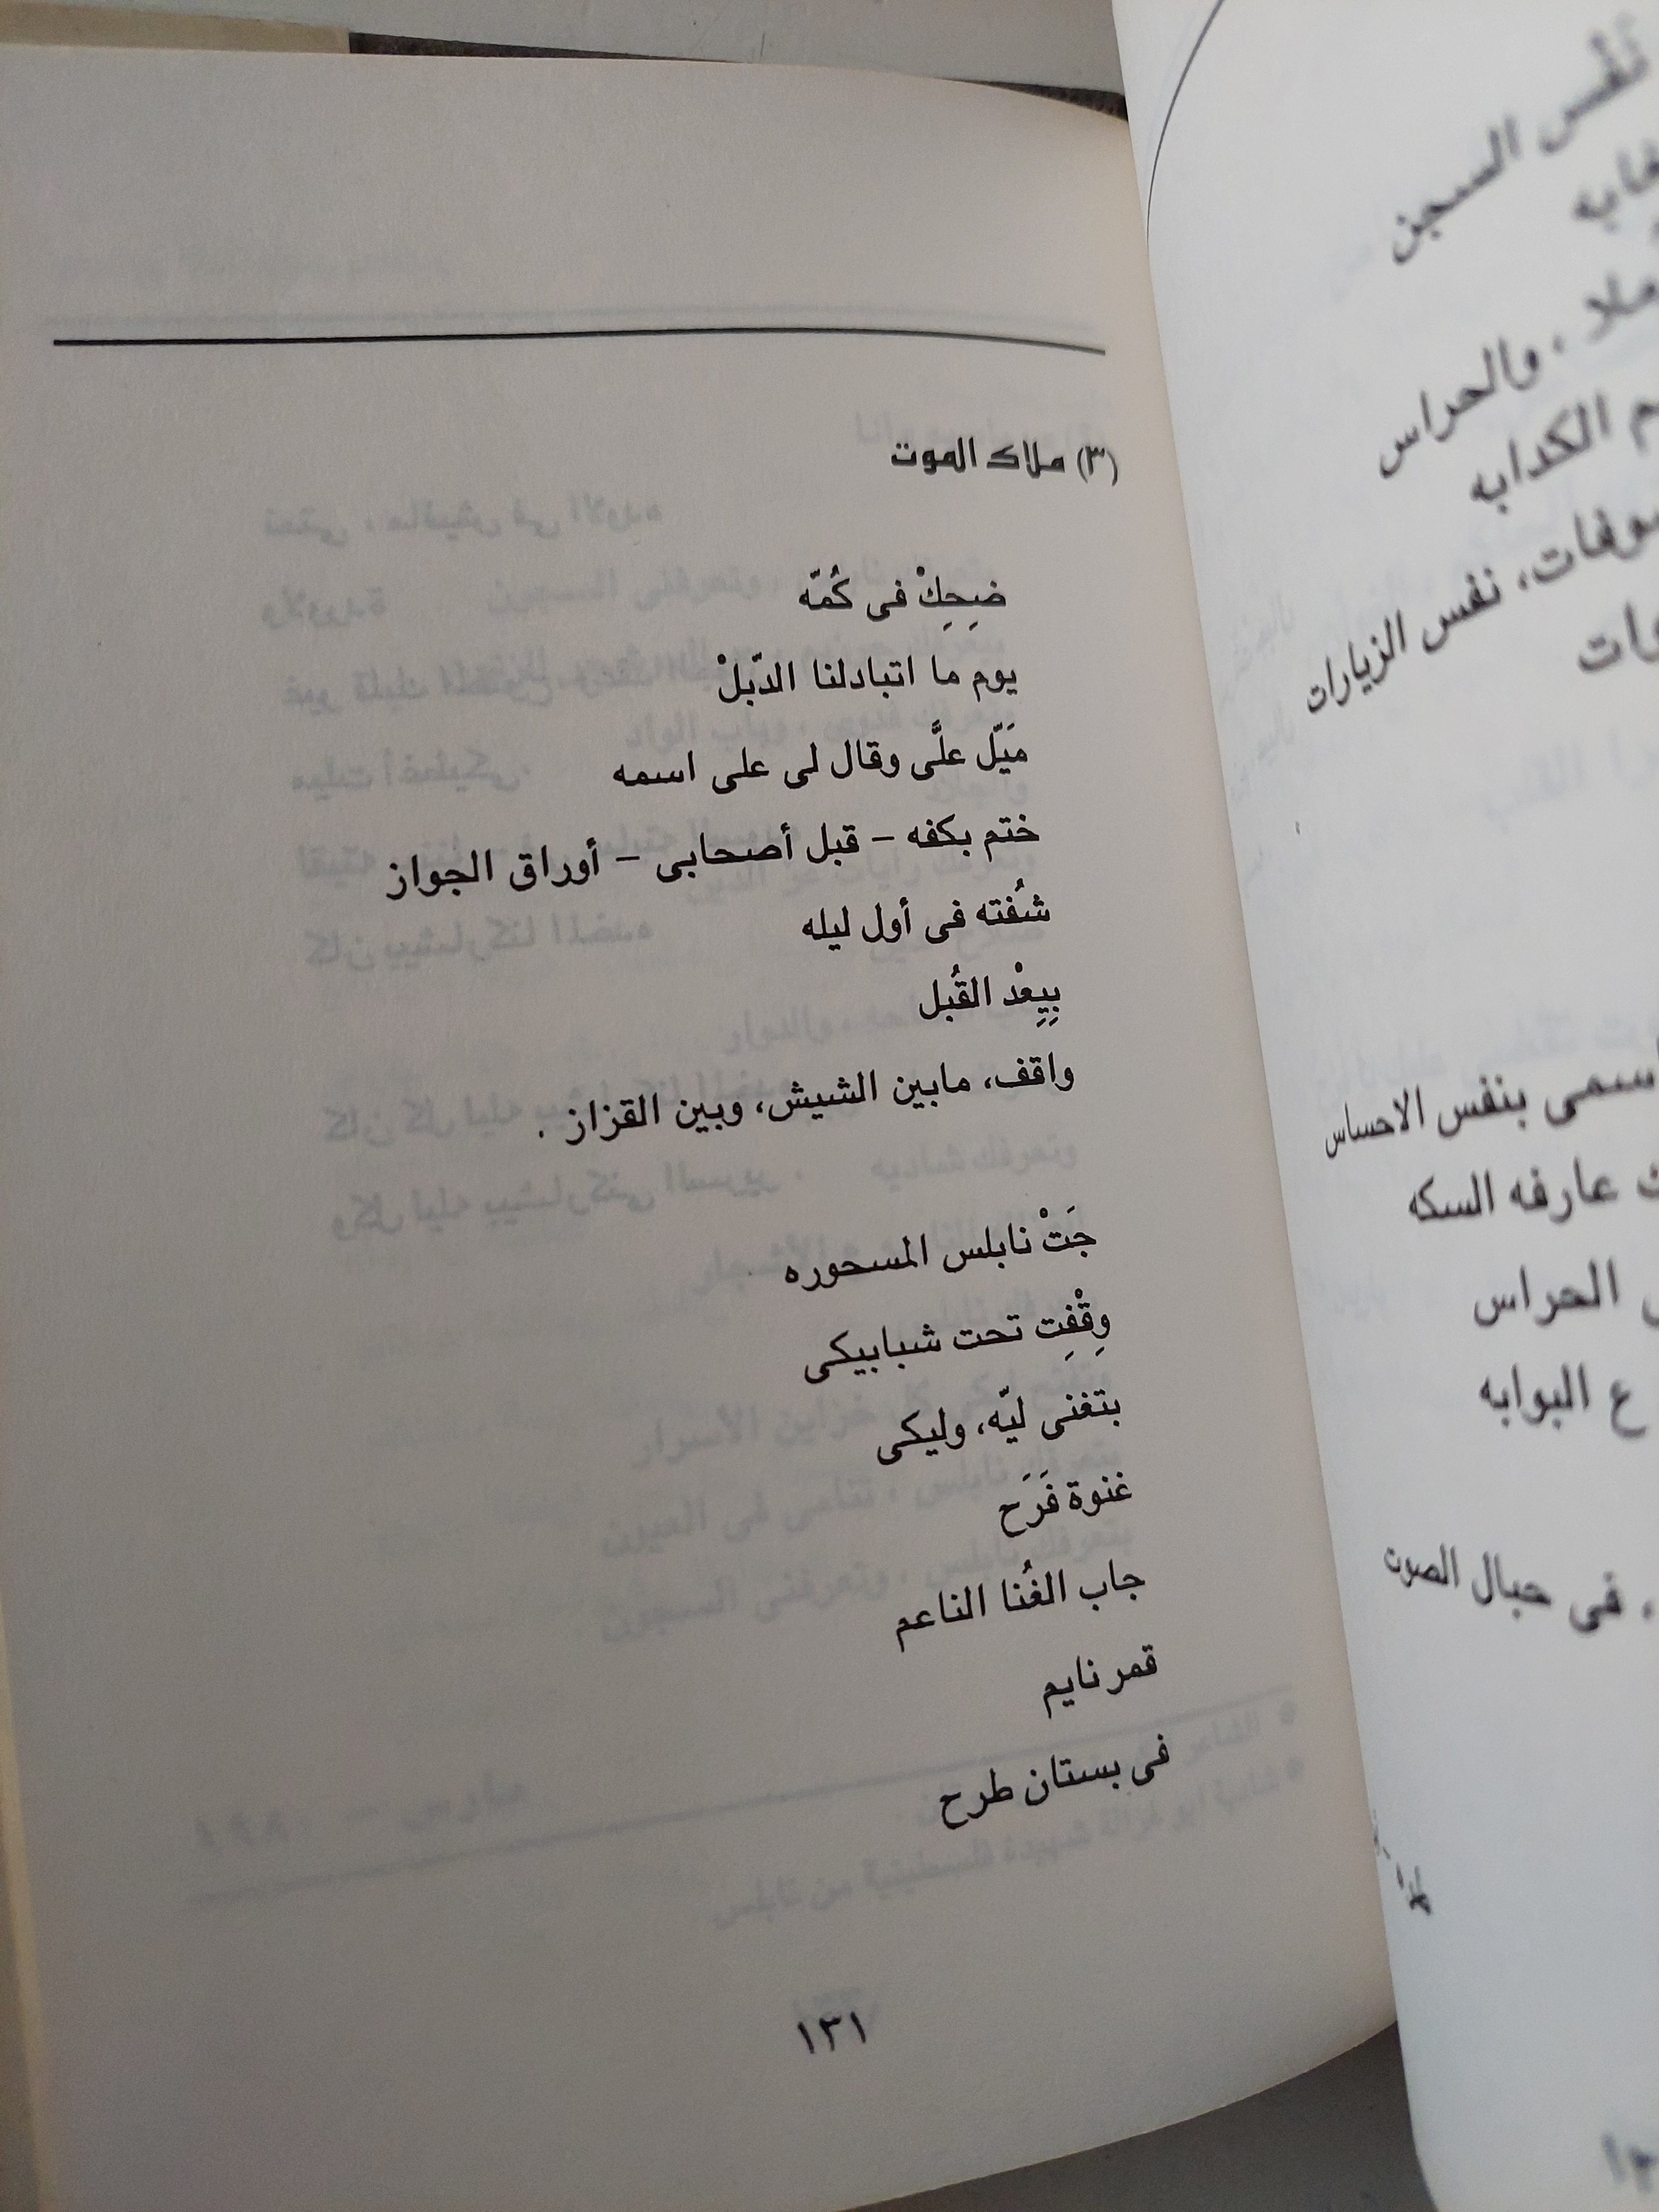 نَفْس السجن
والحراس
الكدابه
نفس الزيارات
بنفس الاحساس
عارفه السكه
الحراس
ع البوابه
، فى حبال الصوت
(٣) ملاك الموت
ضِحِكْ فى كُمّه
يوم ما اتبادلنا الدّبلْ
مَيّل علَّى وقال لى على اسمه
ختم بكفه – قبل أصحابى – أوراق الجواز
شُفته فى أول ليله
بِيِعْد القُبل
واقف، مابين الشيش، وبين القزاز .
جَتْ نابلس المسحوره
وِقْفِت تحت شبابيكى
بتغنى ليّه، وليكى
غنوة فَرَح
جاب الغُنا الناعم
قمر نايم
فى بستان طرح
١٣١